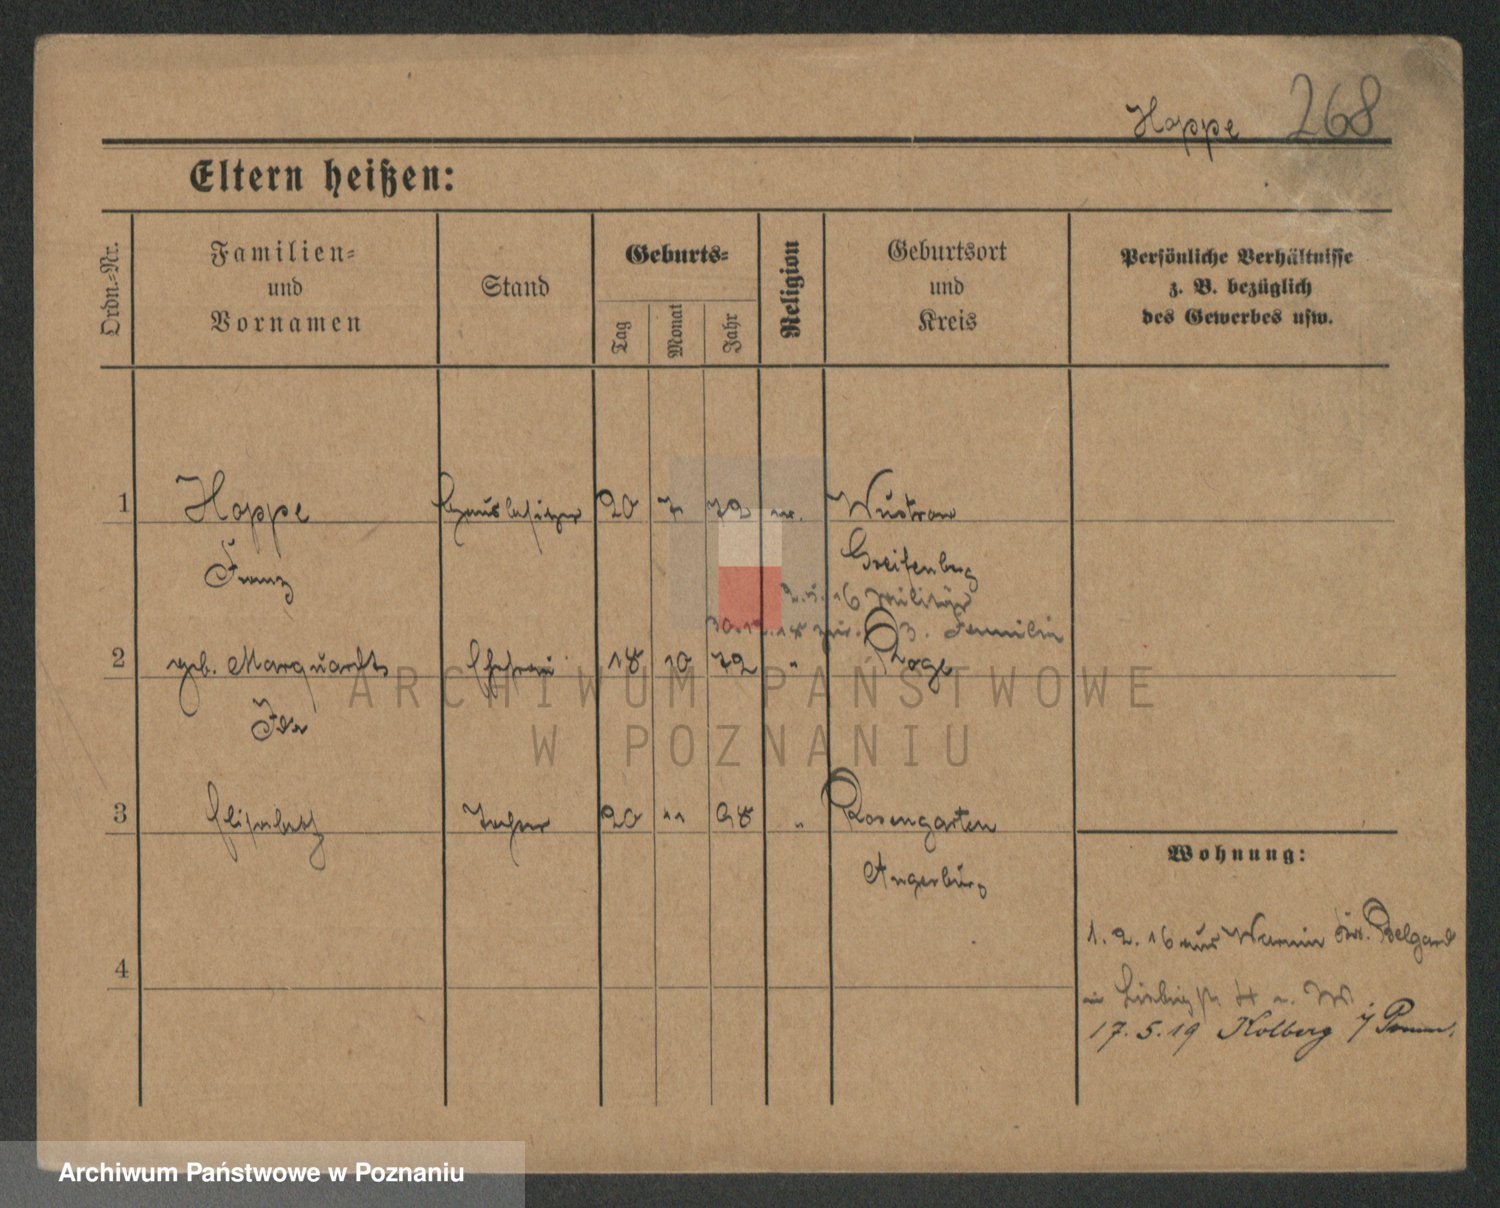 Hoppe 268
Eltern heißen:
Ordn.-Nr.
Familien-
und
Vornamen
Stand
Geburts-
Tag
Monat
Jahr
Religion
Geburtsort
und
Kreis
Persönliche Verhältnisse
z. B. bezüglich
des Gewerbes usw.
1 Hoppe Hausbesitzer 20 7 72 ev. Wustrow
Franz Greifenberg
16 Militär
30.12.18 zur. z. Familie
2 geb. Marquardt Ehefrau 18 10 72 "
Ida
3 Elisabeth Tochter 20 11 98 " Rosengarten
Angerburg
4
Wohnung:
1. 2. 16 aus Belgard
in
17. 5. 19 Kolberg i/ Pomm.
ARCHIWUM PAŃSTWOWE
W POZNANIU
Archiwum Państwowe w Poznaniu